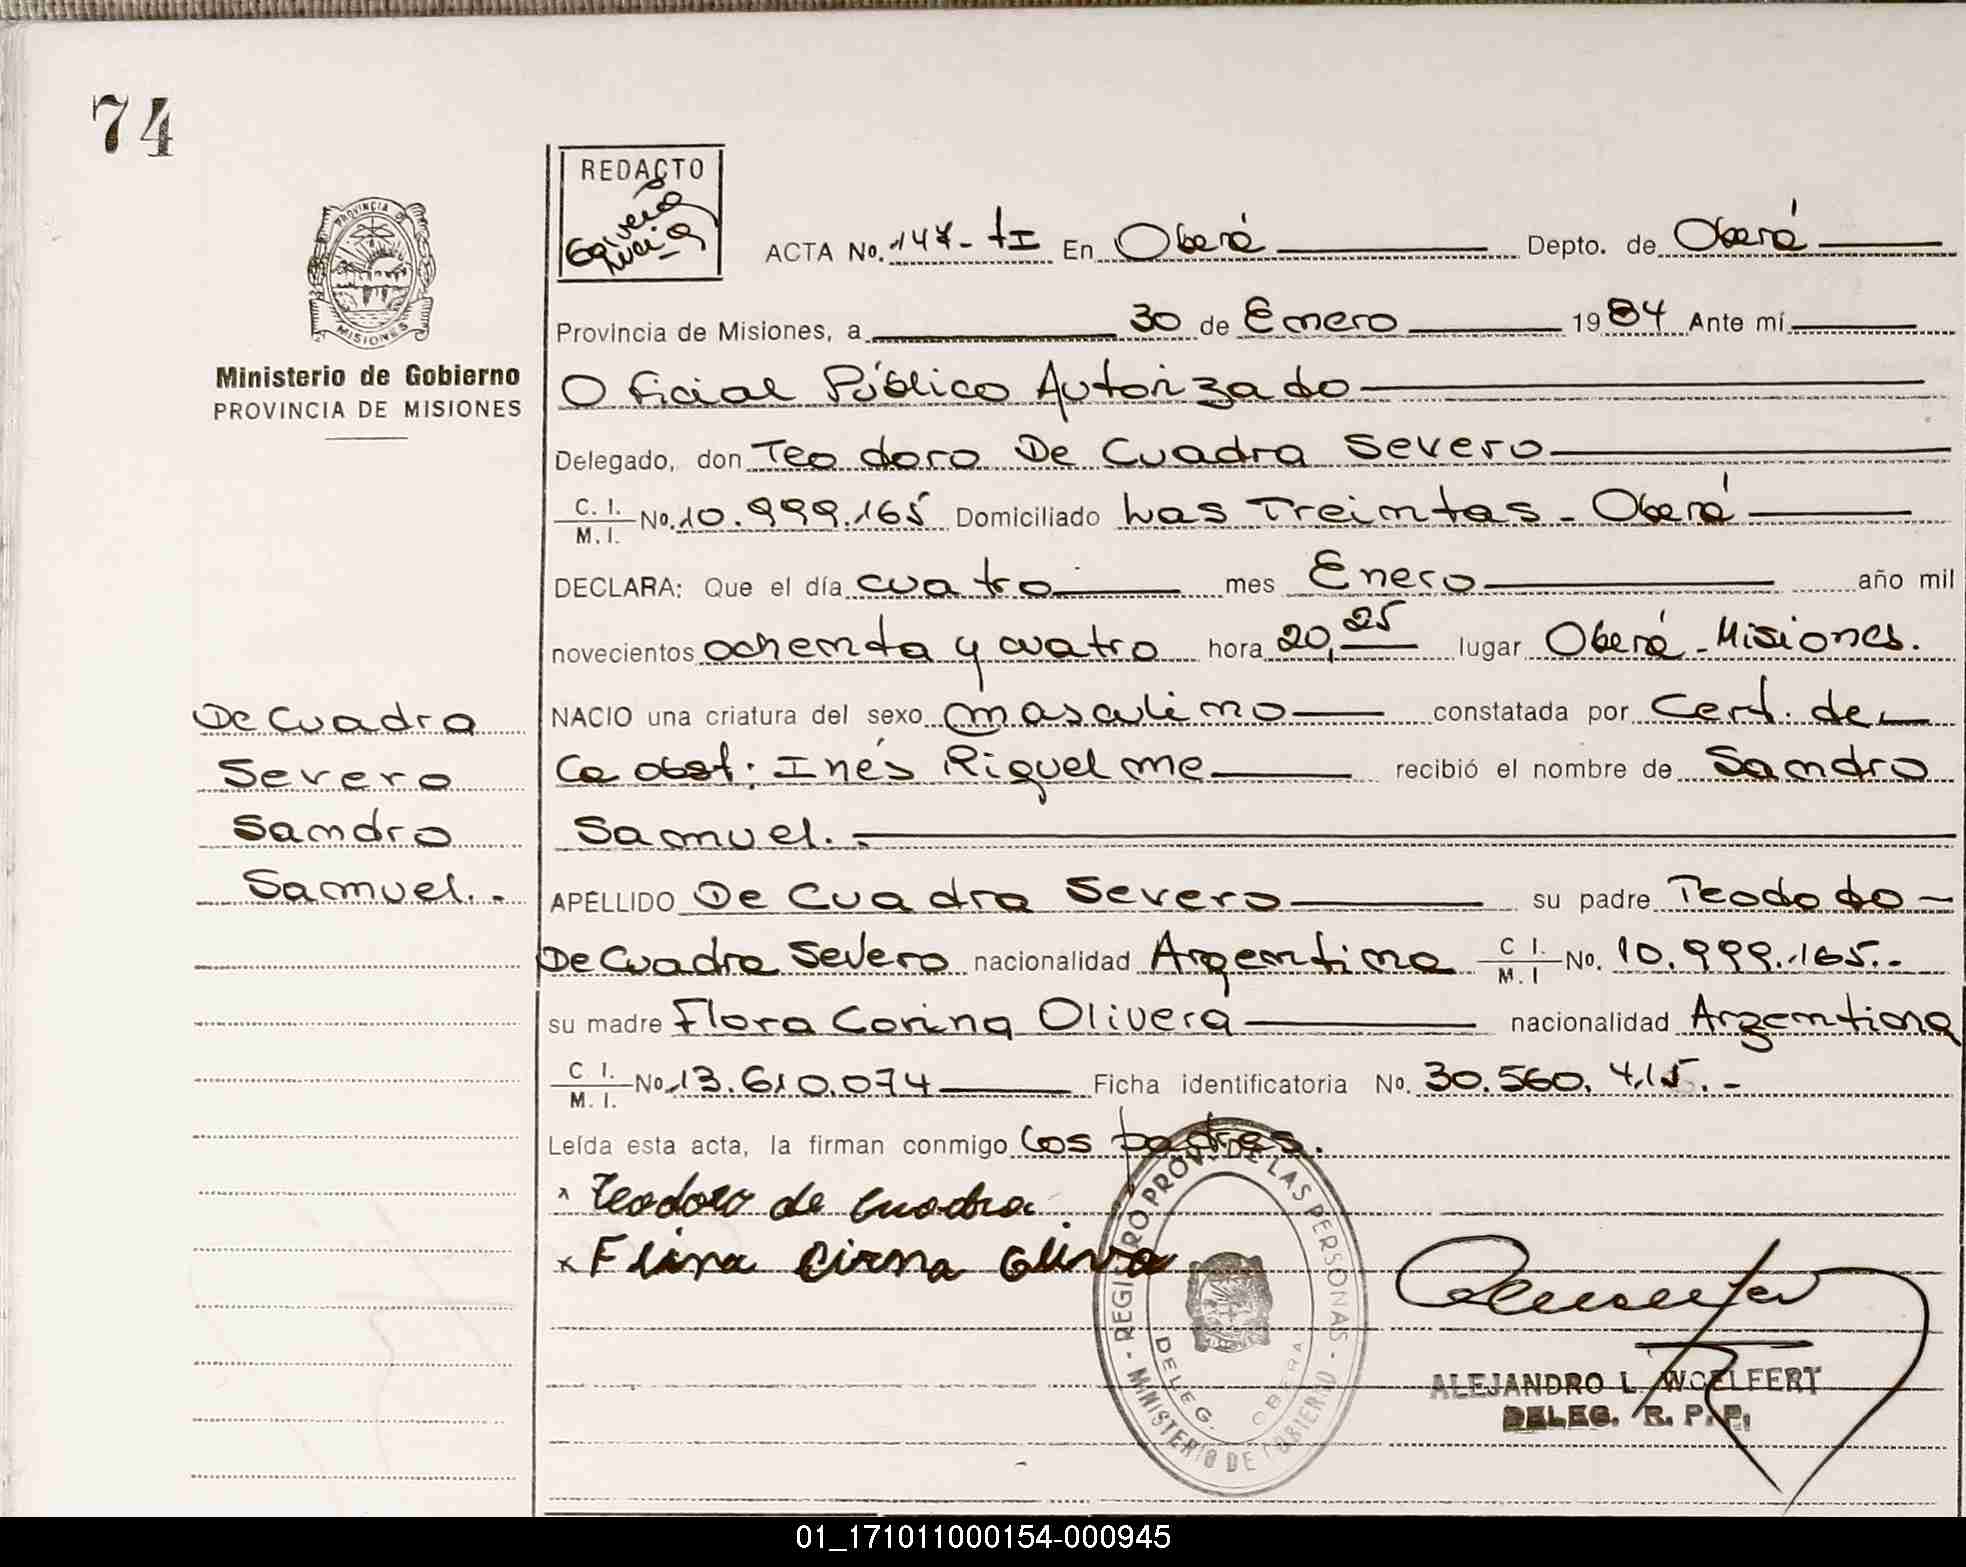 74
REDACTO
PROVINCIA DE
MISIONES
Ministerio de Gobierno
PROVINCIA DE MISIONES
ACTA No. 147-tI En Oberá Depto. de Oberá
Provincia de Misiones, a 30 de Enero 1984 Ante mí
Oficial Público Autorizado
Delegado, don Teodoro De Cuadra Severo
C. I. / M. I. No. 10.999.165 Domiciliado Las Treintas - Oberá
DECLARA: Que el día cuatro mes Enero año mil
novecientos ochenta y cuatro hora 20,25 lugar Oberá - Misiones.
NACIO una criatura del sexo masculino constatada por Cert. de
la obst: Inés Riquelme recibió el nombre de Sandro
Samuel.-
De Cuadra
Severo
Sandro
Samuel.-
APELLIDO De Cuadra Severo su padre Teododo -
De Cuadra Severo nacionalidad Argentina C I. / M. I No. 10.999.165.-
su madre Flora Corina Olivera nacionalidad Argentina
C I. / M. I. No. 13.610.074 Ficha identificatoria No. 30.560.415.-
Leída esta acta, la firman conmigo los padres.
x Teodoro de Cuadra.
x Olivra
- REGISTRO PROV. DE LAS PERSONAS -
MINISTERIO DE GOBIERNO
DELEG. OBERA
ALEJANDRO L. WOELFERT
DELEG. R. P. P.
01_171011000154-000945